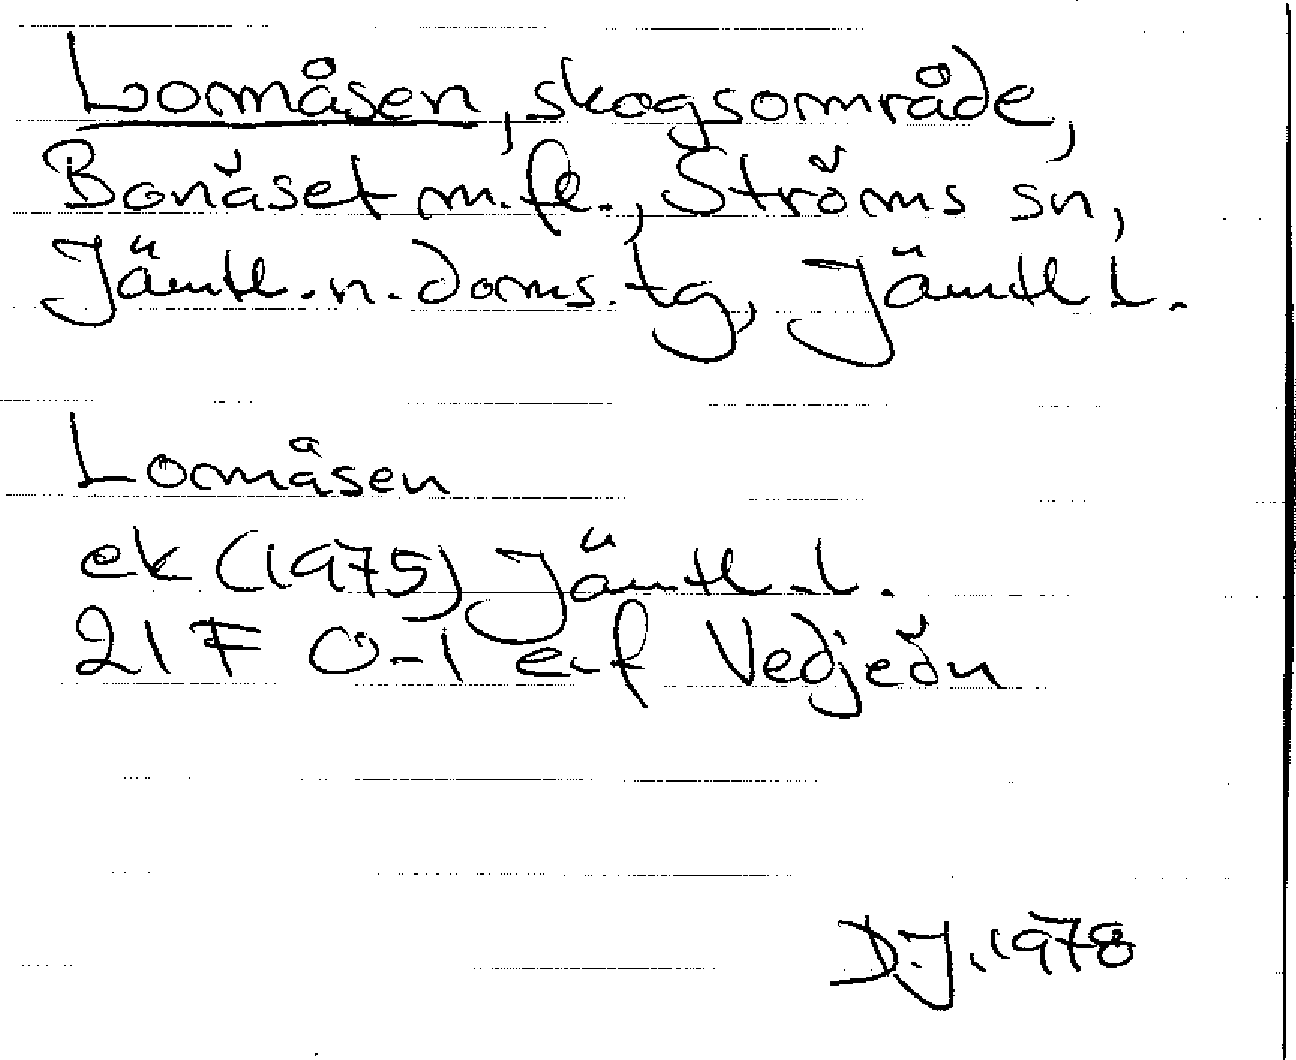 Lomåsen, skogsområde,
Bonäset m.fl., Ströms sn,
Jämtl. n. doms. tg, Jämtl l.
Lomåsen
ek (1975) Jämtl. l.
21 F 0-1 e-f Vedjeön
D.J. 1978